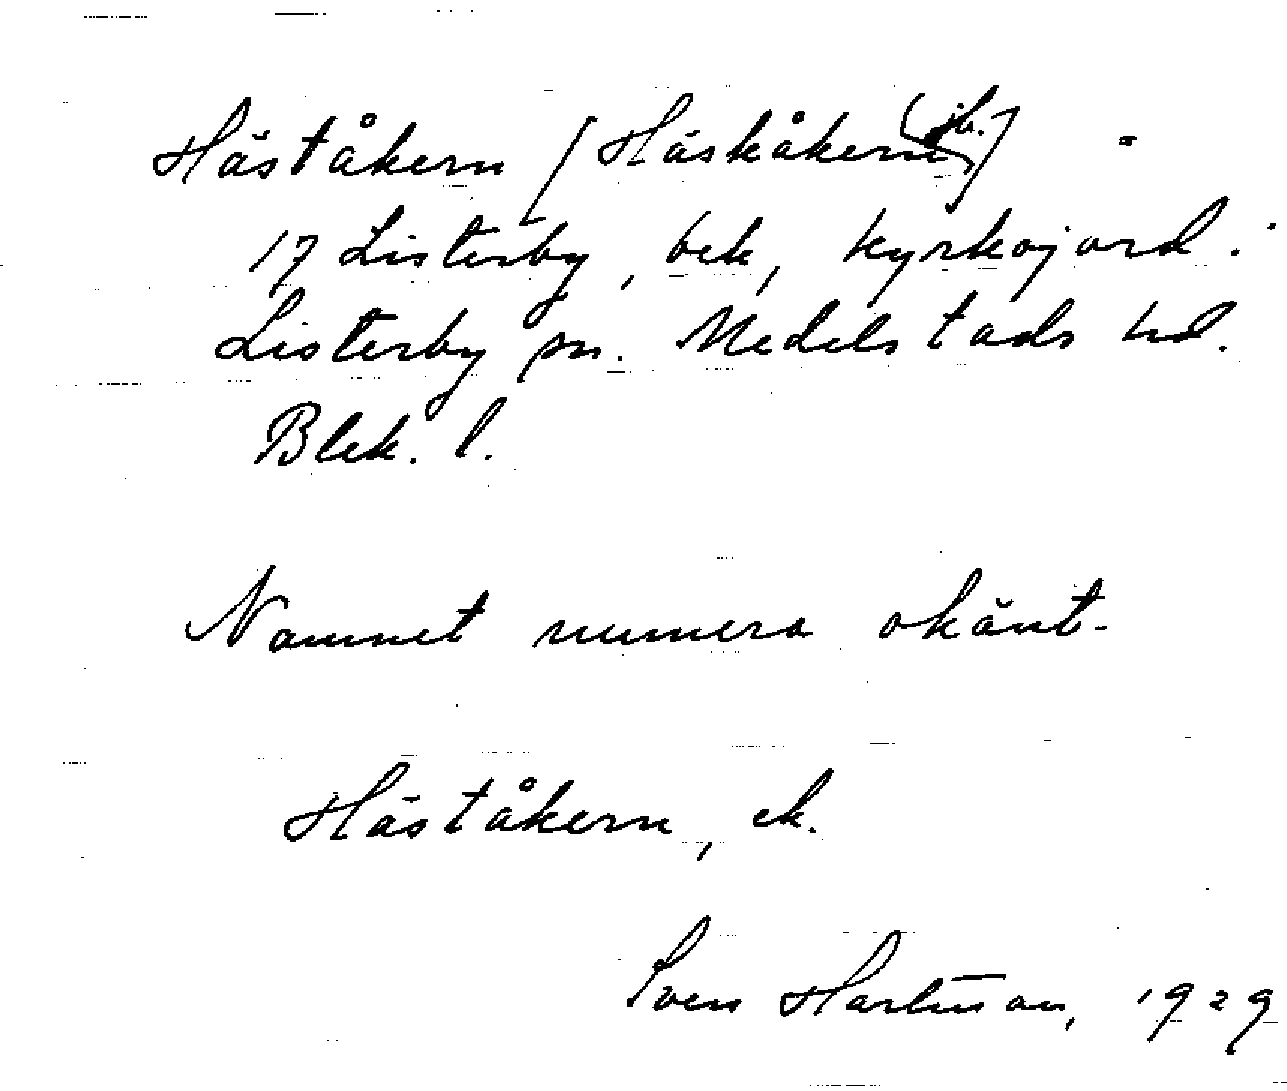 Häståkern [Häskåkern (jb.)]
17 Listerby, bek, kyrkojord.
Listerby sn. Medelstads hd.
Blek. l.
Namnet numera okänt.
Häståkern, ek.
Sven Hartman, 1929